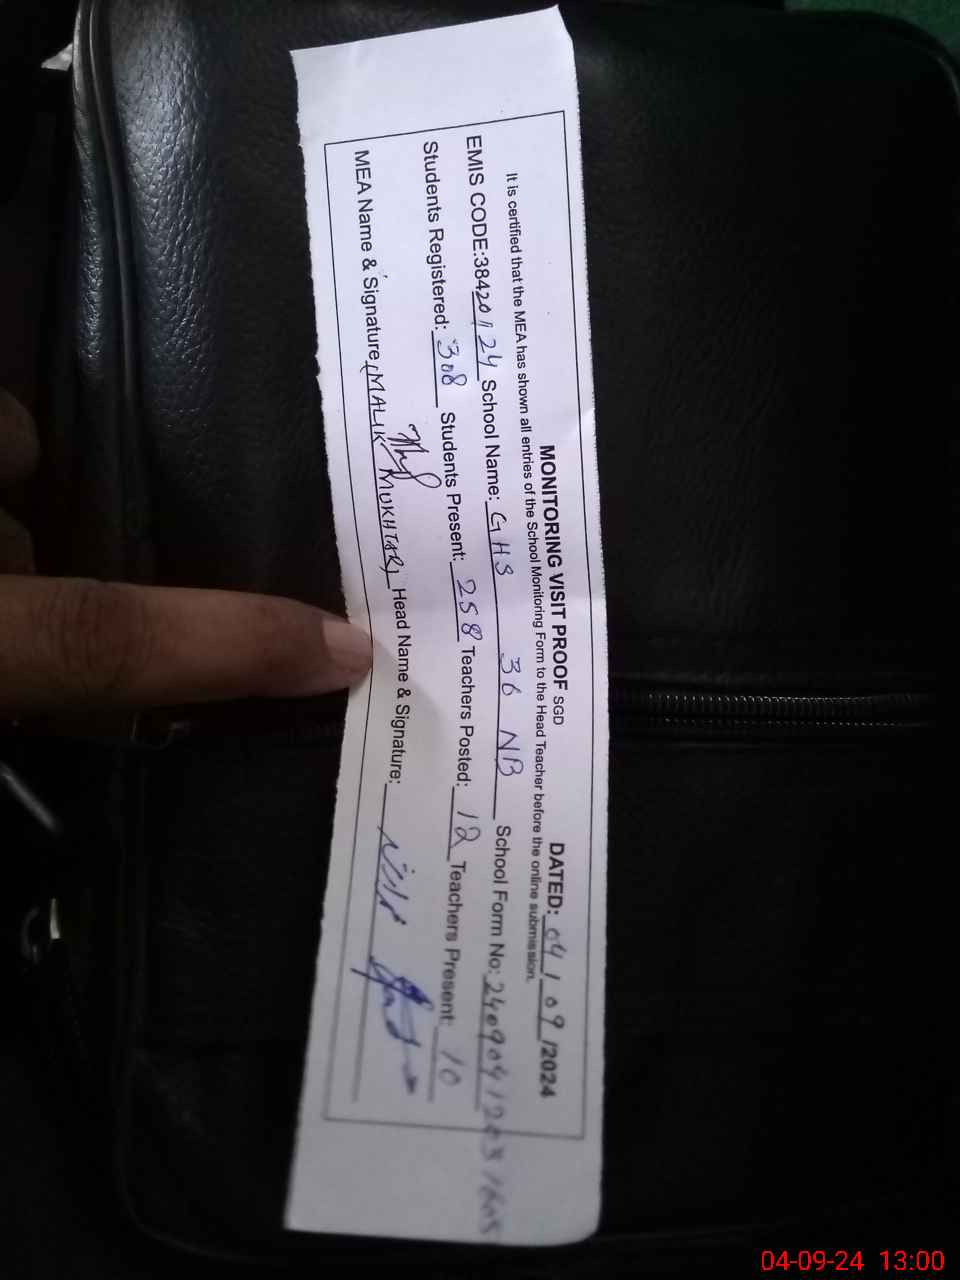 MONITORING VISIT PROOF SGD DATED: 04 / 09 /2024
It is certified that the MEA has shown all entries of the School Monitoring Form to the Head Teacher before the online submission.
EMIS CODE:38420124 School Name: GHS 36 NB School Form No: 240904120
Students Registered: 308 Students Present: 258 Teachers Posted: 12 Teachers Present: 10
MEA Name & Signature (MALIK MUKHTAR) Head Name & Signature:
04-09-24 13:00